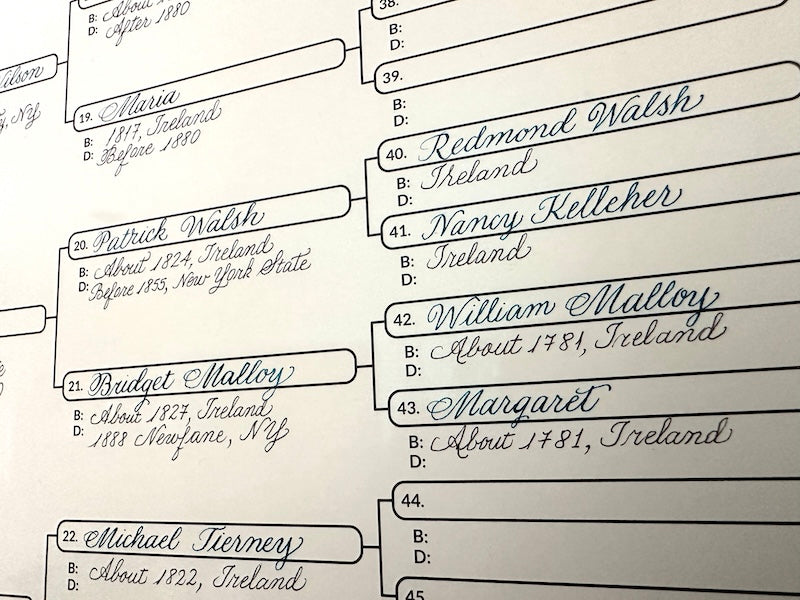 B: About
D: After 1880
38.
B:
D:
Wilson
NY
19. Maria
B: 1817, Ireland
D: Before 1880
39.
B:
D:
40. Redmond Walsh
B: Ireland
D:
20. Patrick Walsh
B: About 1824, Ireland
D: Before 1855, New York State
41. Nancy Kelleher
B: Ireland
D:
42. William Malloy
B: About 1781, Ireland
D:
21. Bridget Malloy
B: About 1827, Ireland
D: 1888 Newfane, NY
43. Margaret
B: About 1781, Ireland
D:
44.
B:
D:
22. Michael Tierney
B: About 1822, Ireland
D:
45.